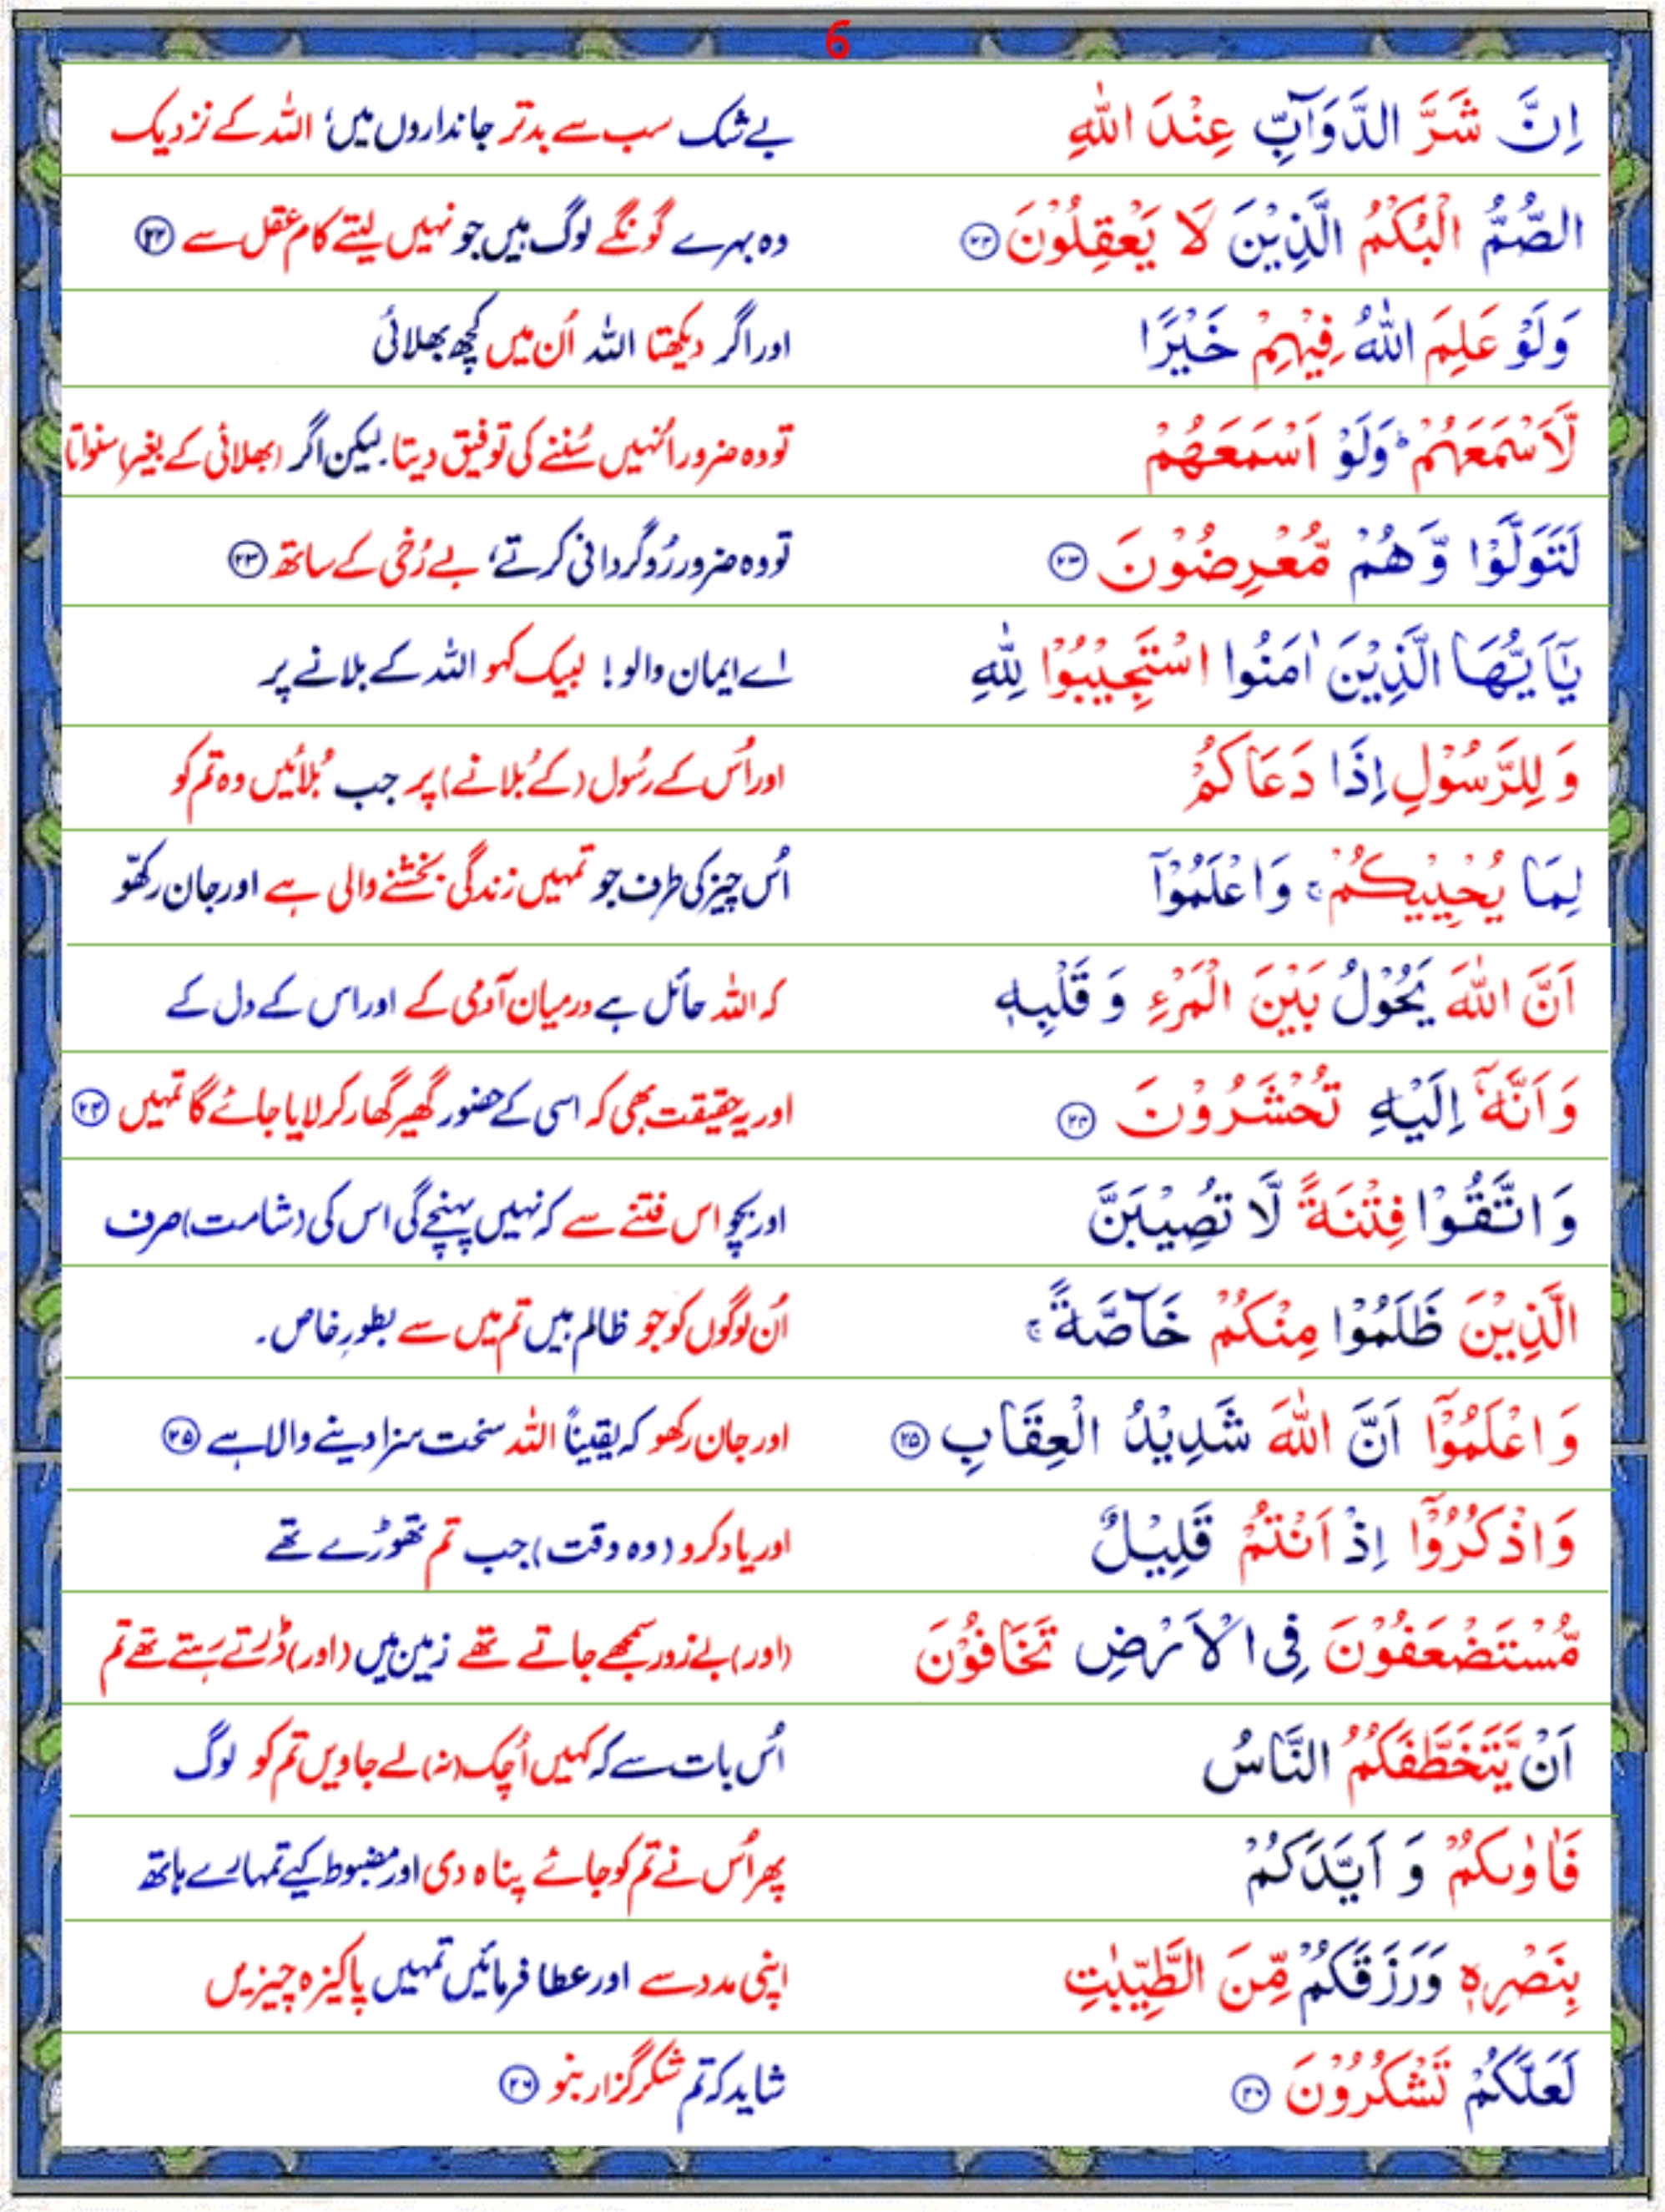 6
اِنَّ شَرَّ الدَّوَآبِّ عِنْدَ اللّٰهِ بے شک سب سے بدتر جانداروں میں، اللہ کے نزدیک
الصُّمُّ الْبُكْمُ الَّذِيْنَ لَا يَعْقِلُوْنَ ۲۲ وہ بہرے گونگے لوگ ہیں جو نہیں لیتے کام عقل سے ۲۲
وَلَوْ عَلِمَ اللّٰهُ فِيْهِمْ خَيْرًا اور اگر دیکھتا اللہ اُن میں کچھ بھلائی
لَّاَسْمَعَهُمْ ؕ وَلَوْ اَسْمَعَهُمْ تو وہ ضرور اُنہیں سُننے کی توفیق دیتا۔ لیکن اگر (بھلائی کے بغیر) سنواتا
لَتَوَلَّوْا وَّهُمْ مُّعْرِضُوْنَ ۲۳ تو وہ ضرور رُوگردانی کرتے، بے رُخی کے ساتھ ۲۳
يٰۤاَيُّهَا الَّذِيْنَ اٰمَنُوا اسْتَجِيْبُوْا لِلّٰهِ اے ایمان والو! لبیک کہو اللہ کے بلانے پر
وَ لِلرَّسُوْلِ اِذَا دَعَاكُمْ اور اُس کے رسُول (کے بُلانے) پر جب بُلائیں وہ تم کو
لِمَا يُحْيِيْكُمْ ۚ وَاعْلَمُوْۤا اُس چیز کی طرف جو تمہیں زندگی بخشنے والی ہے اور جان رکھّو
اَنَّ اللّٰهَ يَحُوْلُ بَيْنَ الْمَرْءِ وَ قَلْبِهٖ کہ اللہ حائل ہے درمیان آدمی کے اور اس کے دل کے
وَاَنَّهٗۤ اِلَيْهِ تُحْشَرُوْنَ ۲۴ اور یہ حقیقت بھی کہ اسی کے حضور گھیر گھار کر لایا جائے گا تمہیں ۲۴
وَ اتَّقُوْا فِتْنَةً لَّا تُصِيْبَنَّ اور بچو اس فتنے سے کہ نہیں پہنچے گی اس کی (شامت) صرف
الَّذِيْنَ ظَلَمُوْا مِنْكُمْ خَآصَّةً ۚ اُن لوگوں کو جو ظالم ہیں تم میں سے بطورِ خاص۔
وَ اعْلَمُوْۤا اَنَّ اللّٰهَ شَدِيْدُ الْعِقَابِ ۲۵ اور جان رکھو کہ یقیناً اللہ سخت سزا دینے والا ہے ۲۵
وَاذْكُرُوْۤا اِذْ اَنْتُمْ قَلِيْلٌ اور یاد کرو (وہ وقت) جب تم تھوڑے تھے
مُّسْتَضْعَفُوْنَ فِى الْاَرْضِ تَخَافُوْنَ (اور) بے زور سمجھے جاتے تھے زمین میں (اور) ڈرتے رہتے تھے تم
اَنْ يَّتَخَطَّفَكُمُ النَّاسُ اُس بات سے کہ کہیں اُچک (نہ) لے جاویں تم کو لوگ
فَاٰوٰىكُمْ وَ اَيَّدَكُمْ پھر اُس نے تم کو جائے پناہ دی اور مضبوط کیے تمہارے ہاتھ
بِنَصْرِهٖ وَرَزَقَكُمْ مِّنَ الطَّيِّبٰتِ اپنی مدد سے اور عطا فرمائیں تمہیں پاکیزہ چیزیں
لَعَلَّكُمْ تَشْكُرُوْنَ ۲۶ شاید کہ تم شکر گزار بنو ۲۶